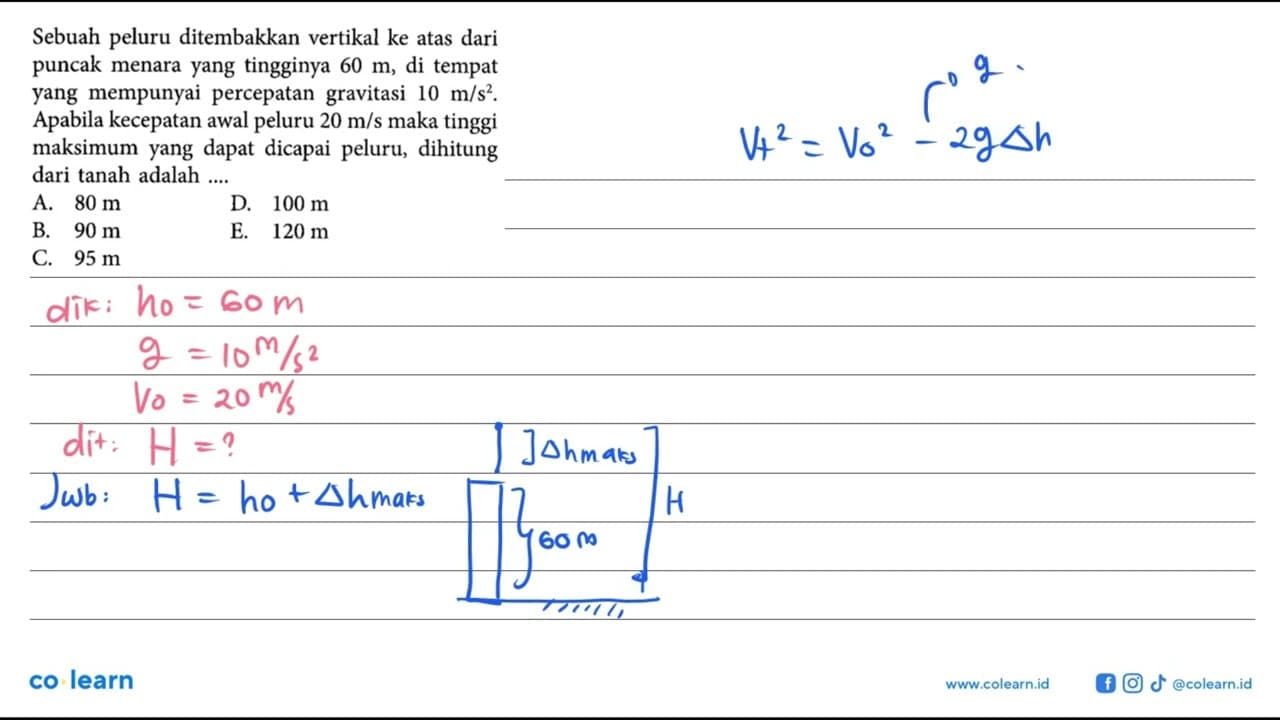 Sebuah peluru ditembakkan vertikal ke atas dari
puncak menara yang tingginya 60 m, di tempat
yang mempunyai percepatan gravitasi 10 m/s².
Apabila kecepatan awal peluru 20 m/s maka tinggi
maksimum yang dapat dicapai peluru, dihitung
dari tanah adalah ....
A. 80 m D. 100 m
B. 90 m E. 120 m
C. 95 m
g
Vt² = Vo² - 2gΔh
dik: ho = 60 m
g = 10 m/s²
Vo = 20 m/s
dit: H = ?
Jwb: H = ho + Δhmaks
Δhmaks
H
60 m
co learn
www.colearn.id
@colearn.id